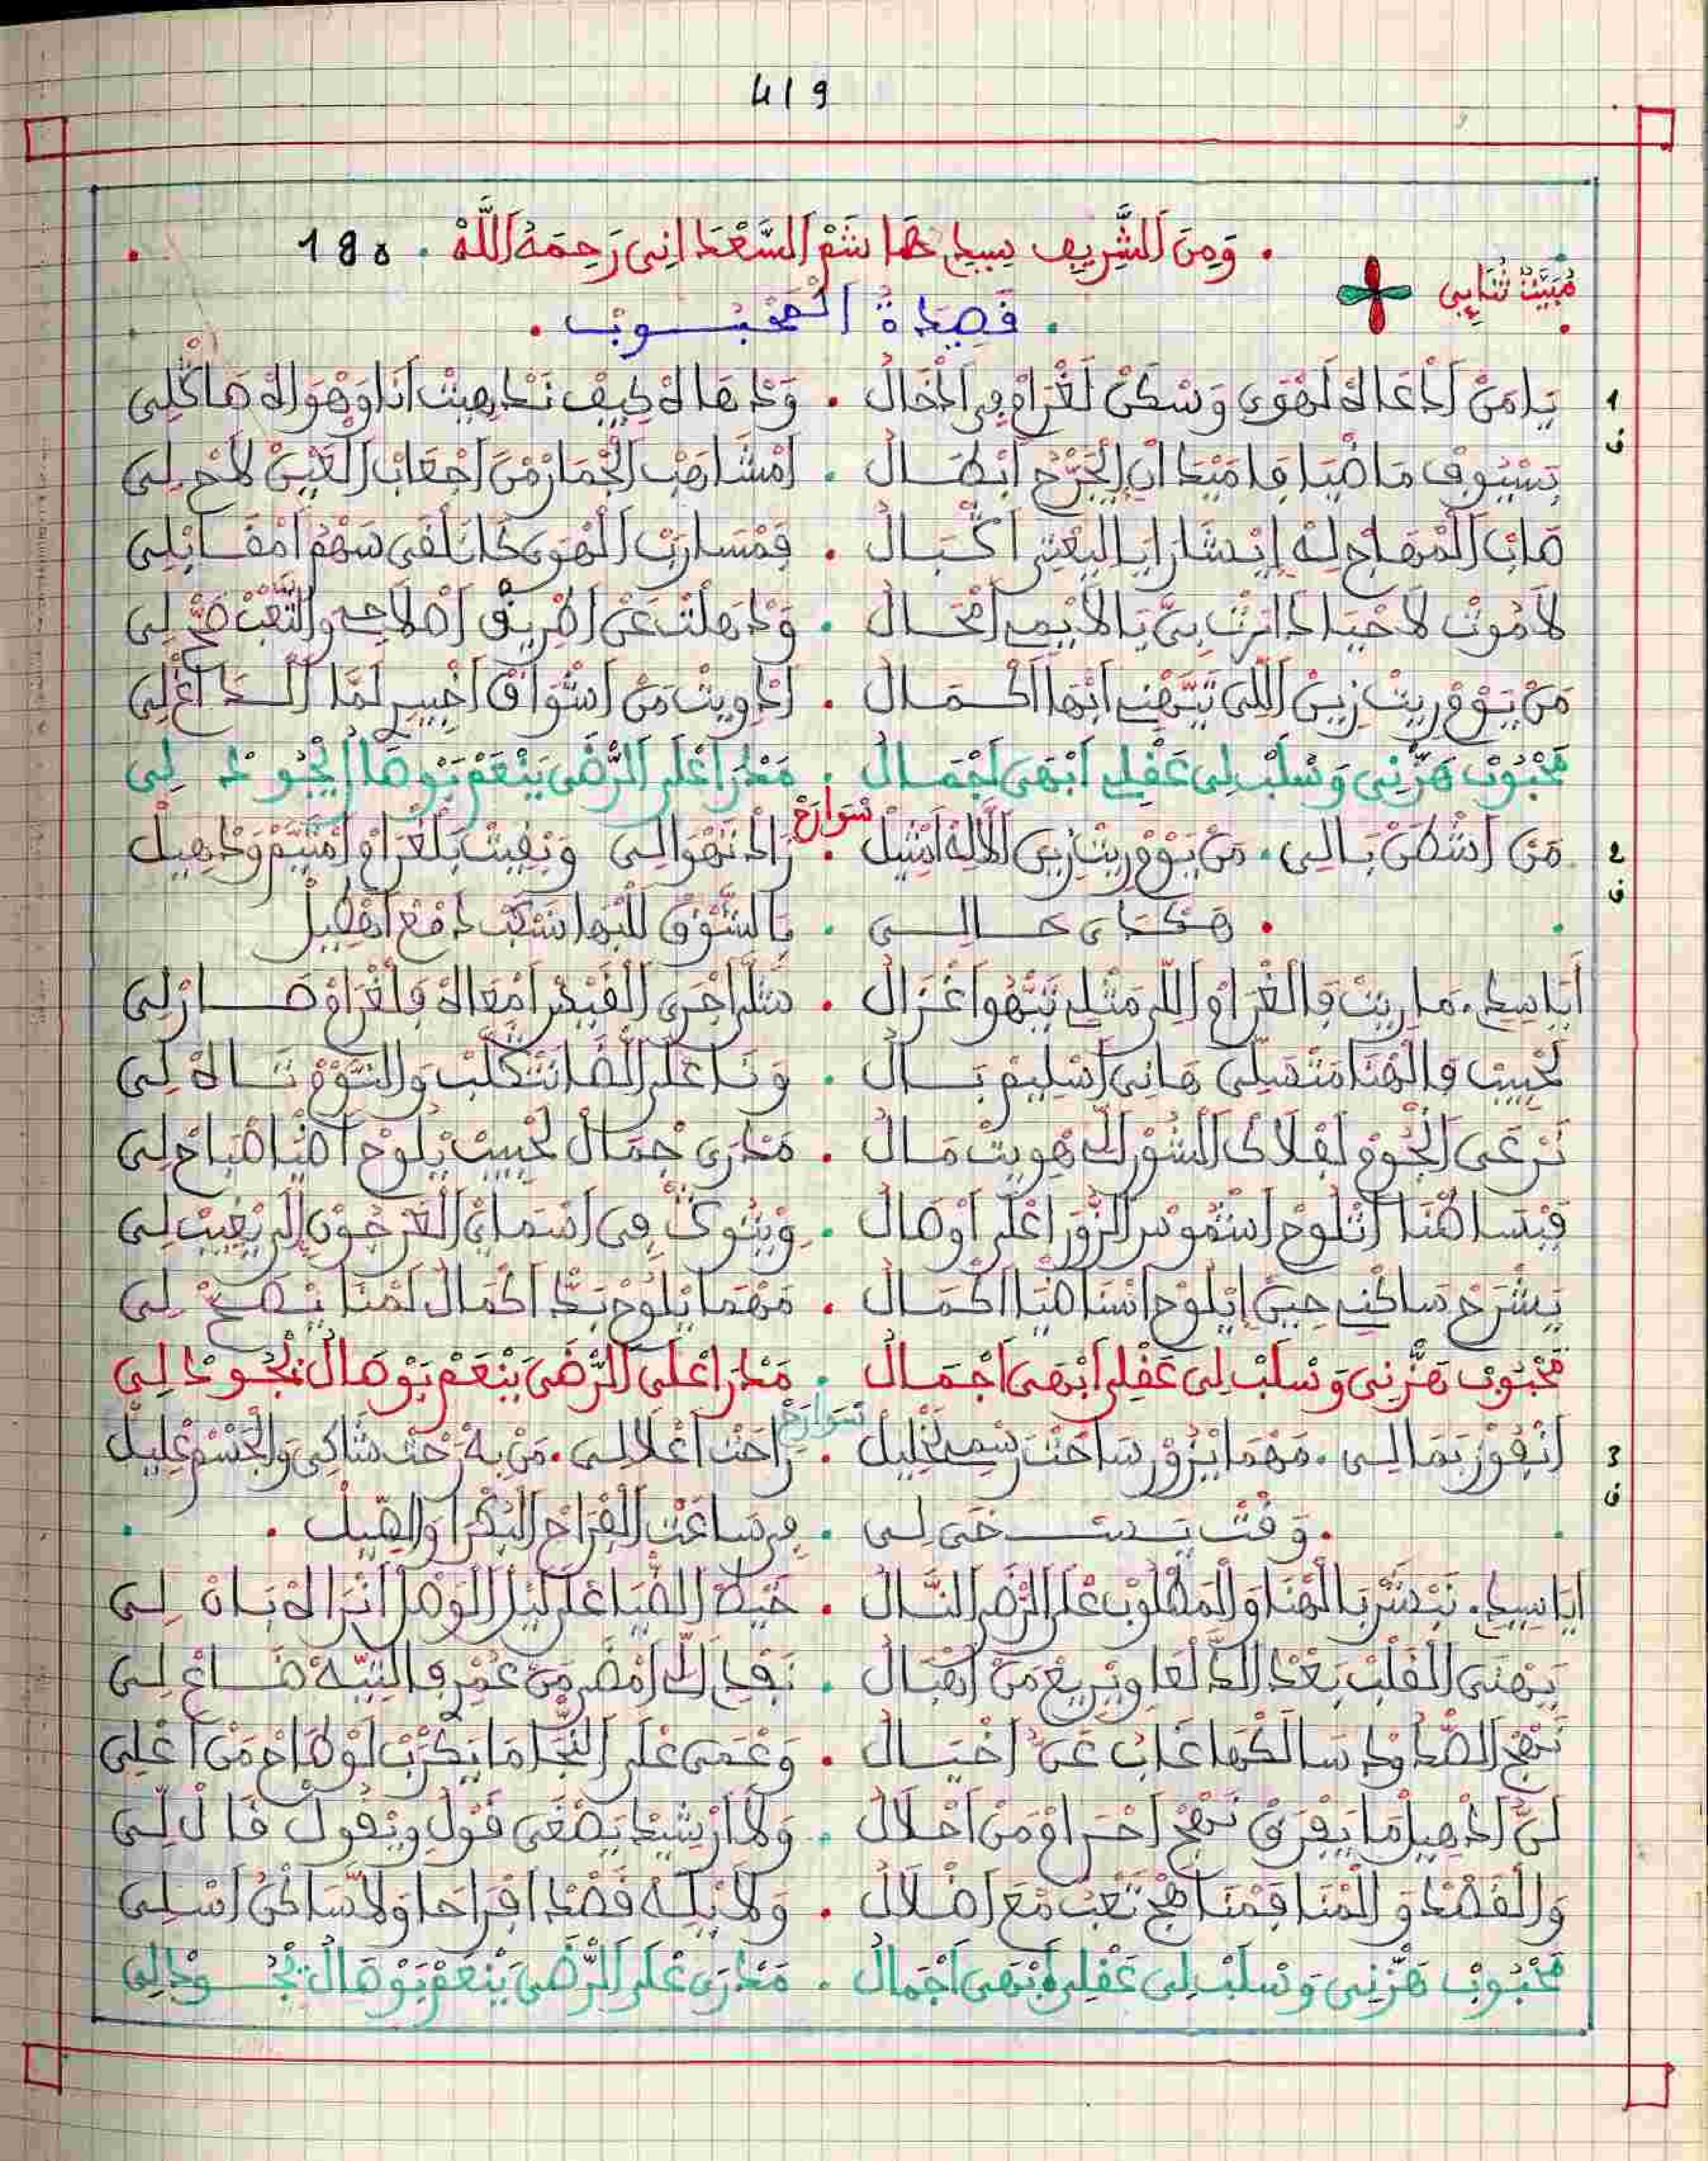 419
. وَمِنَ الشَّرِيفِ سِيدِي هَاشَمْ السَّعْدَانِي رَحِمَهُ اللَّهْ . 180
مْبَيَّتْ ثْنَايِي
. قَصِيدَةُ المَحْبُوبْ .
1 يَا مَنْ اَدْعَاكْ لَهْوَى وَسْكَنْ لَغْرَامْ فِي اَدْخَالْ . وَدْهَاكْ كِيفْ نَدْهِيتْ اَنَا وَهْوَاكْ هَاكْلِي
ف
بَسْيُوفْ مَاضْيَا قَامَيْدَانْ الْجَرْحْ اَبْطَالْ . اَمْشَاهَبْ الْجْمَارْ مَنْ اَجْعَابْ الْعَيْنْ لَاحْ لِي
صَابْ الْمْهَاجْ لِهْ اِشَارَا يَا الْبَعْثِي اَكْبَالْ . فَمْسَارَبْ الْهْوَى كَانَلْقَى سَهْمْ اَمْقَابْلِي
لَا مُوتْ لَا حْيَا دَارَتْ بِيَّ يَا لَايْمِي اَمْحَالْ . وَدْهَلْتْ عَنْ اَطْرِيقْ اَصْلَاحِي وَالتَّعْبْ صَحّْ لِي
مَنْ يَوْمْ رِيتْ زِينْ اللِّي تَيَّهْنِي اَبْهَا اَكْمَالْ . اَدْوِيتْ مَنْ اَشْوَاقْ اَخْيِيرْ لَمَّا
مَحْبُوبْ هَزْنِي وَسْلَبْ لِي عَقْلِي اَبْهَى اَجْمَالْ . مَدْرَا اعْلَى الرّْضَى يَنْعَمْ بَوْصَالْ يْجُودْ لِي
سْوَارَحْ
2 مَنْ اَشْطَنْ بَالِي . مَنْ يَوْمْ رِيتْ زِينْ اَلَالَهْ اَمْثِيلْ . زَادْ تَهْوَالِي وَبْقِيتْ بَلْغْرَامْ اَمْتَيَّمْ وَدْهِيلْ
ف
. هَكْدَى حَالِي . بَالشَّوْقْ لَلْبْهَا نَسْكَبْ دَمْعْ اَهْطِيلْ
أَيَا سِيدِي . مَا رِيتْ فَالْغْرَامْ اللِّي مَثْلِي تَيّْهُوا غْزَالْ . مَثْلْ اَجْرَى الْقَيْسْ اَمْعَاهْ فَلْغْرَامْ صَارْلِي
لَحْبِيبْ فَالْهْنَا مَتْسَلِّي هَانِي اَسْلِيمْ بَالْ . وَنَا عْلَى اللّْضَا نَتْكَلَّبْ وَالنَّوْمْ تَاهْ لِي
نَرْعَى اَنْجُومْ لَفْلَاكْ الشُّورْ اللِّي هْوِيتْ مَالْ . مَدْرَى جْمَالْ لَحْبِيبْ يْلُوحْ اَضْيَا صْبَاحْ لِي
فَبْسَاطْنَا اَتْلُوحْ اَشْمُوسْ الزُّورْ اعْلَى اَوْصَالْ . وِيْتُوكْ فِي اَسْمَايْ الْفَرْجُونْ لَمْرِيغِيتْ لِي
يَشْرَحْ سَاكْنِي حِينْ اِيْلُوحْ اَنْسَا ضْيَا اَكْمَالْ . مَهْمَا يْلُوحْ بَدْ اَكْمَالْ لَمْنَا يْصَحّْ لِي
مَحْبُوبْ هَزْنِي وَسْلَبْ لِي عَقْلِي اَبْهَى اَجْمَالْ . مَدْرَا اعْلَى الرّْضَى يَنْعَمْ بَوْصَالْ يْجُودْ لِي
سْوَارَحْ
3 اَنْفُوزْ بَمَالِي . مَهْمَا يْزُورْ سَاحْتْ رَسْمِي لَخْلِيلْ . رَاحْتْ اَعْلَالِي . مَنْ بِهْ رَحْتْ شَاكِي وَالْجَسْمْ عْلِيلْ
ف
. وَقْتْ يَسْخَى لِي . فِي سَاعَتْ الْفْرَاحْ الْبُكْرَا وَاصِيلْ .
اَيَا سِيدِي . نَبْشَرْ بَالْهْنَا وَالْمَطْلُوبْ عْلَى الرّْضَى اَنْنَالْ . خَيْطْ الضّْيَا عْلَى لَيْلْ الْوَصْلْ اَنْرَاهْ بَانْ لِي
يَهْنَى الْقَلْبْ بَعْدْ الدَّلْعَا وِيْرِيعْ مَنْ اَهْبَالْ . نَفْدِي اللِّي اَمْضَى مَنْ عُمْرِي فَالتِّيهْ ضَاعْ لِي
نَهْجْ الصّْدُودْ سَالَكْهَا غَابْ عَنْ اَخْيَالْ . وَعْمَى عْلَى النّْجَا مَا يَكْرَبْ لَوْ طَاحْ مَنْ اَعْلِي
لَنّْ اَدْهِيلْ مَا يَفْرَقْ نَهْجْ اَحْرَامْ مَنْ اَحْلَالْ . وَلَا اَرْشِيدْ يَصْغَى قَوْلِي وِيْقُولْ قَالْ لِي
وَالْقَصْدْ وَالْمْنَا فَمْنَاهَجْ تَعْبْ مْعَ اَضْلَالْ . وَلَا بْلَهْ قَصْدْ اَفْرَاحَا وَلَا سَاكْنْ اَسْلِي
مَحْبُوبْ هَزْنِي وَسْلَبْ لِي عَقْلِي اَبْهَى اَجْمَالْ . مَدْرَى عْلَى الرّْضَى يَنْعَمْ بَوْصَالْ يْجُودْ لِي